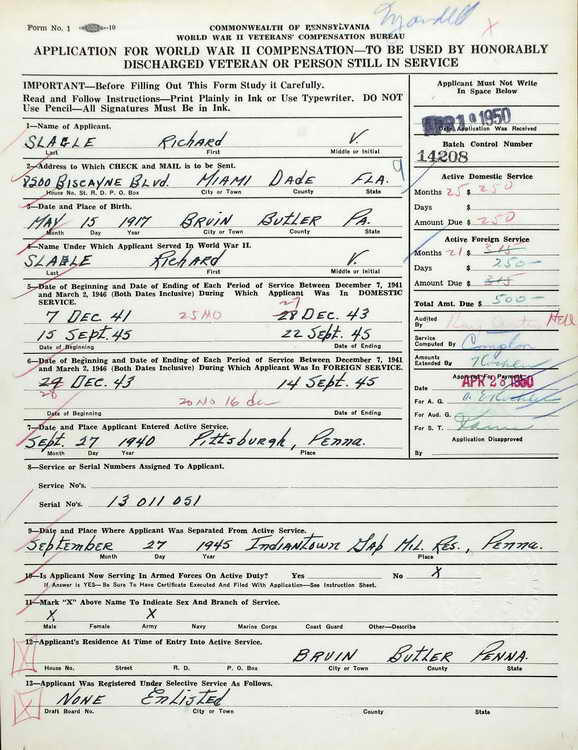 Form No. 1
COMMONWEALTH OF PENNSYLVANIA
WORLD WAR II VETERANS' COMPENSATION BUREAU
APPLICATION FOR WORLD WAR II COMPENSATION—TO BE USED BY HONORABLY
DISCHARGED VETERAN OR PERSON STILL IN SERVICE
IMPORTANT—Before Filling Out This Form Study it Carefully.
Read and Follow Instructions—Print Plainly in Ink or Use Typewriter. DO NOT
Use Pencil—All Signatures Must Be in Ink.
Applicant Must Not Write
In Space Below
1950
Date Application Was Received
Batch Control Number
14208
1—Name of Applicant.
SLAGLE Richard V.
Last First Middle or Initial
2—Address to Which CHECK and MAIL is to be Sent.
8500 BISCAYNE BLVD. MIAMI DADE FLA.
House No. St. R. D. P. O. Box City or Town County State
3—Date and Place of Birth.
MAY 15 1917 BRUIN BUTLER PA.
Month Day Year City or Town County State
4—Name Under Which Applicant Served In World War II.
SLAGLE Richard V
Last First Middle or Initial
5—Date of Beginning and Date of Ending of Each Period of Service Between December 7, 1941
and March 2, 1946 (Both Dates Inclusive) During Which Applicant Was In DOMESTIC
SERVICE.
27
7 DEC. 41 25 MO 28 DEC. 43
15 Sept. 45 22 Sept. 45
Date of Beginning Date of Ending
6—Date of Beginning and Date of Ending of Each Period of Service Between December 7, 1941
and March 2, 1946 (Both Dates Inclusive) During Which Applicant Was In FOREIGN SERVICE.
29 DEC. 43 14 Sept. 45
28 20 Mo 16 da
Date of Beginning Date of Ending
7—Date and Place Applicant Entered Active Service.
Sept. 27 1940 Pittsburgh, Penna.
Month Day Year Place
8—Service or Serial Numbers Assigned To Applicant.
Service No's.
Serial No's. 13 011 051
9—Date and Place Where Applicant Was Separated From Active Service.
September 27 1945 Indiantown Gap Mil. Res., Penna.
Month Day Year Place
10—Is Applicant Now Serving In Armed Forces On Active Duty? Yes No X
If Answer is YES—Be Sure To Have Certificate Executed And Filed With Application—See Instruction Sheet.
11—Mark "X" Above Name To Indicate Sex And Branch of Service.
X X
Male Female Army Navy Marine Corps Coast Guard Other—Describe
12—Applicant's Residence At Time of Entry Into Active Service.
BRUIN BUTLER PENNA.
House No. Street R. D. P. O. Box City or Town County State
13—Applicant Was Registered Under Selective Service As Follows.
NONE ENLISTED
Draft Board No. City or Town County State
Active Domestic Service
Months 25 $ 250
Days $
Amount Due $ 250
Active Foreign Service
Months 21 $ 315
Days $ 250—
Amount Due $ 315
Total Amt. Due $ 500—
Audited
By
Service
Computed By
Amounts
Extended By
Approved For Payment
Date APR 28 1950
For A. G.
For Aud. G.
For S. T.
Application Disapproved
By